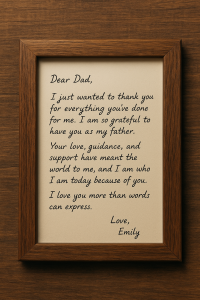 Dear Dad,
I just wanted to thank you
for everything you've done
for me. I am so grateful to
have you as my father.
Your love, guidance, and
support have meant the
world to me, and I am who
I am today because of you.
I love you more than words
can express.
Love,
Emily